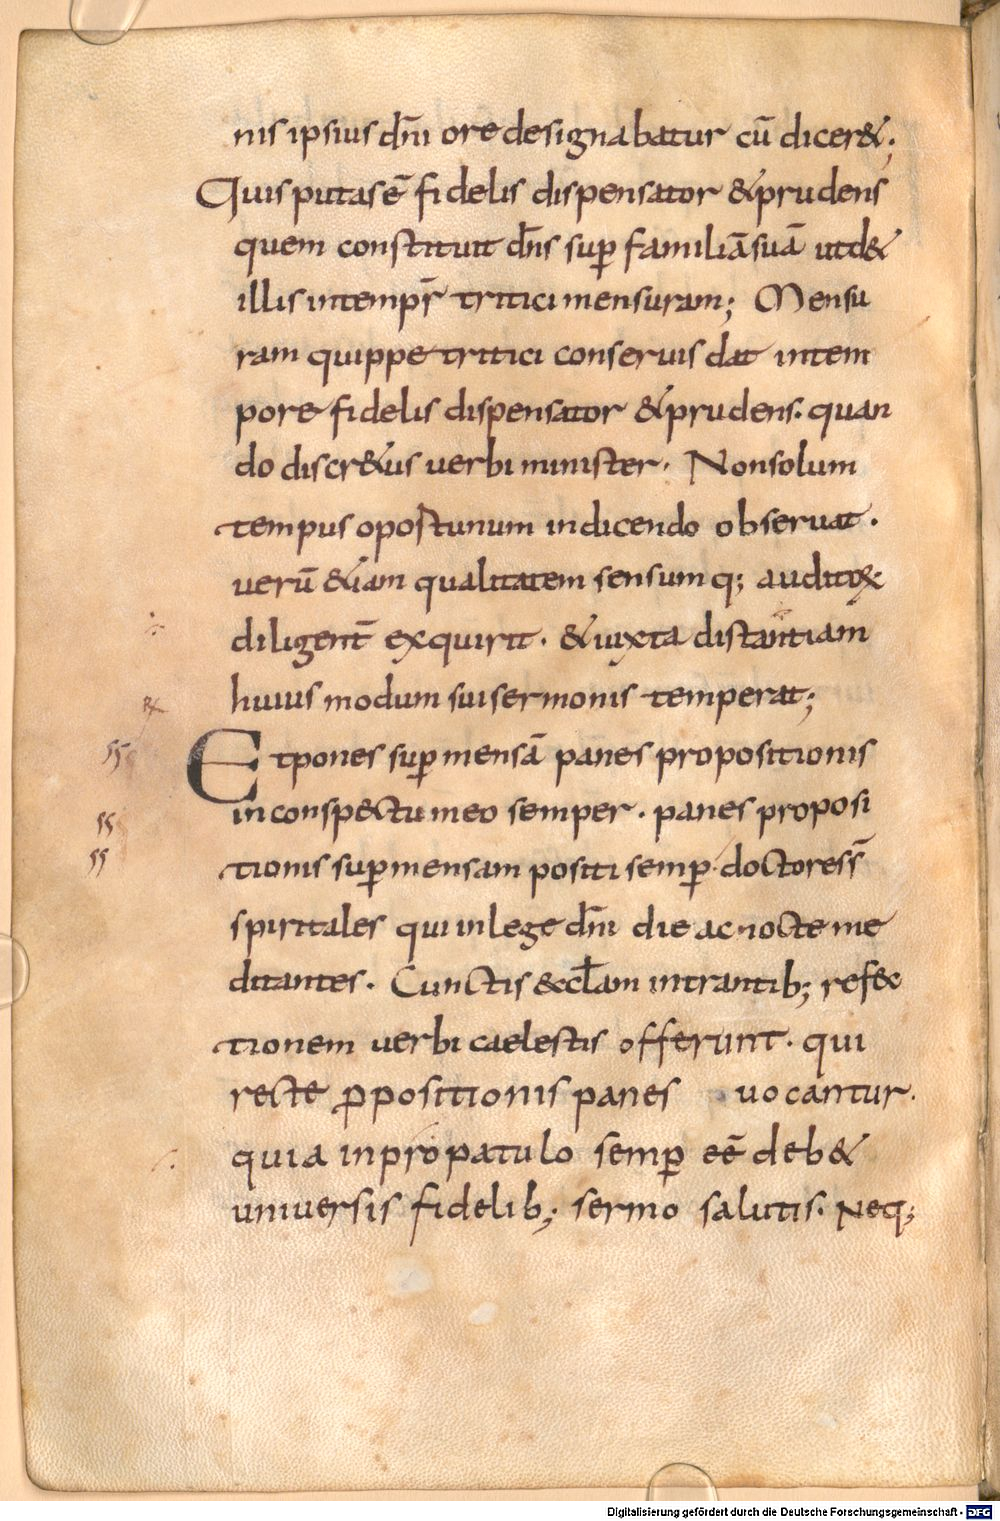 nis ipsius dn̄i ore designabatur cū dicer&;
Quis putas ē fidelis dispensator & prudens
quem constituit dn̄s sup̄ familiā suā ut d&
illis in temp̄r̄ tritici mensuram; Mensu
ram quippe tritici conseruis dat in tem
pore fidelis dispensator & prudens. quan
do discr&us uerbi minister. Non solum
tempus oportunum in dicendo obseruat.
uerū &iam qualitatem sensumq; auditoꝝ
diligent̄ exquirit. & iuxta distantiam
huius modum sui sermonis temperat;
Et pones sup̄ mensā panes propositionis
in conspectu meo semper. panes proposi
tionis sup̄ mensam positi semp̄. doctores s̄
spiritales qui in lege dn̄i die ac nocte me
ditantes. Cunctis &ccl̄am intrantib; refec
tionem uerbi caelestis offerunt. qui
recte ꝓpositionis panes uocantur.
quia in propatulo semp̄ eē deb&
uniuersis fidelib; sermo salutis. Neq;
Digitalisierung gefördert durch die Deutsche Forschungsgemeinschaft - DFG